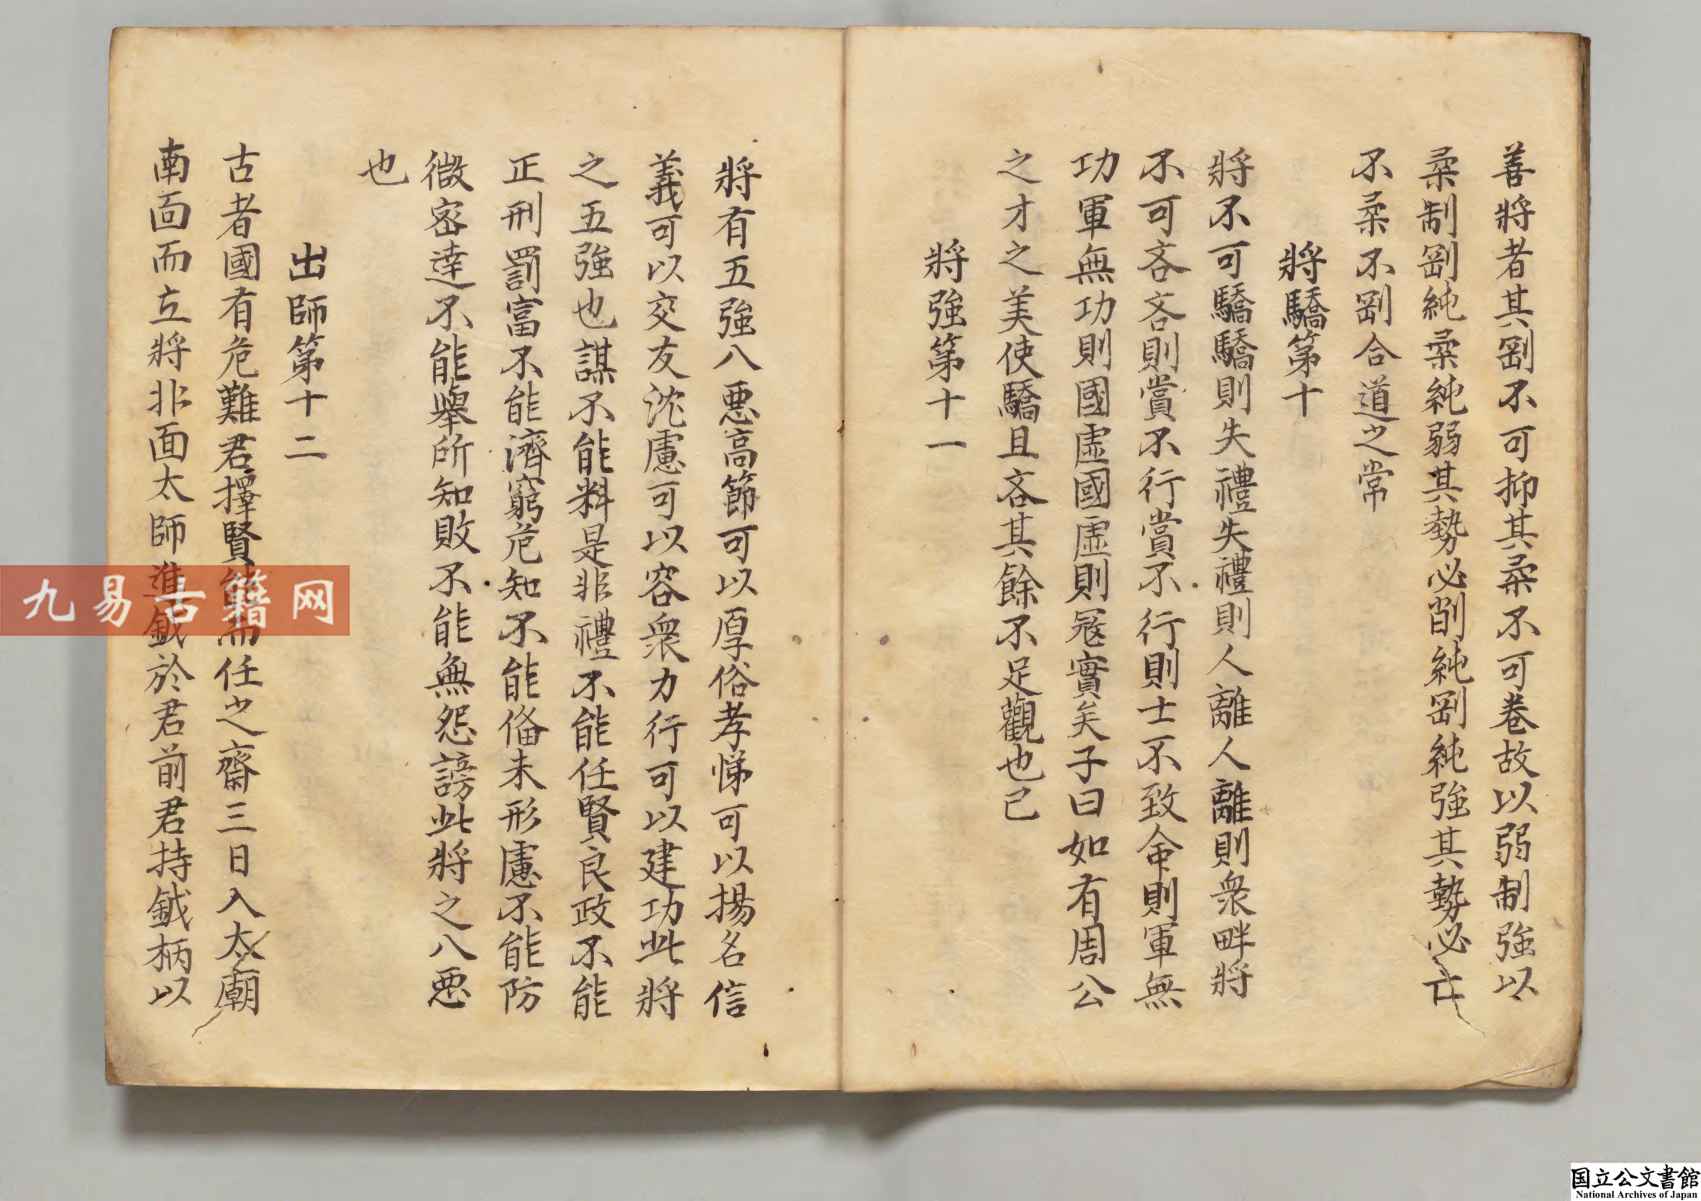 善將者其剛不可抑其柔不可卷故以弱制強以
柔制剛純柔純弱其勢必削純剛純強其勢必亡
不柔不剛合道之常
將驕第十
將不可驕驕則失禮失禮則人離人離則衆畔將
不可吝吝則賞不行賞不行則士不致命則軍無
功軍無功則國虛國虛則寇實矣子曰如有周公
之才之美使驕且吝其餘不足觀也已
將強第十一
將有五強八悪高節可以厚俗孝悌可以揚名信
義可以交友沈慮可以容衆力行可以建功此將
之五強也謀不能料是非禮不能任賢良政不能
正刑罰富不能濟窮危知不能俻未形慮不能防
微密達不能舉所知敗不能無怨謗此將之八悪
也
出師第十二
古者國有危難君擇賢能而任之齋三日入太廟
南面而立將北面太師進鉞於君前君持鉞柄以
九易古籍网
国立公文書館
National Archives of Japan